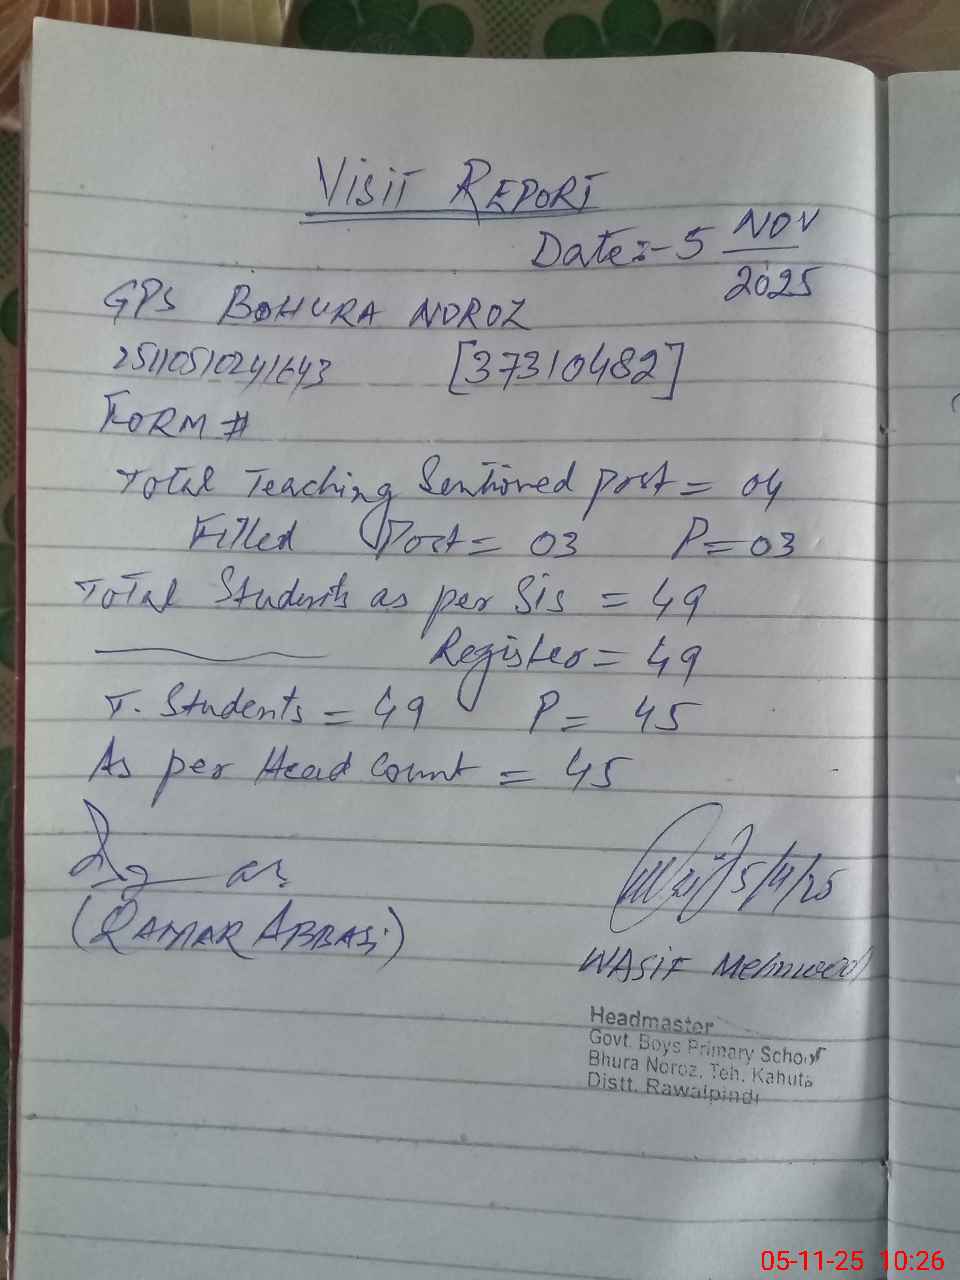 VISIT REPORT
Date:- 5 NOV
2025
GPS BOHURA NOROZ
[37310482]
FORM #
Total Teaching Sentioned post = 04
Filled Post = 03 P = 03
Total Students as per Sis = 49
Register = 49
T. Students = 49 P = 45
As per Head Count = 45
5/11/25
(QAMAR ABBASi)
WASIF Mehmood
Headmaster
Govt. Boys Primary School
Bhura Noroz, Teh. Kahuta
Distt. Rawalpindi
05-11-25 10:26